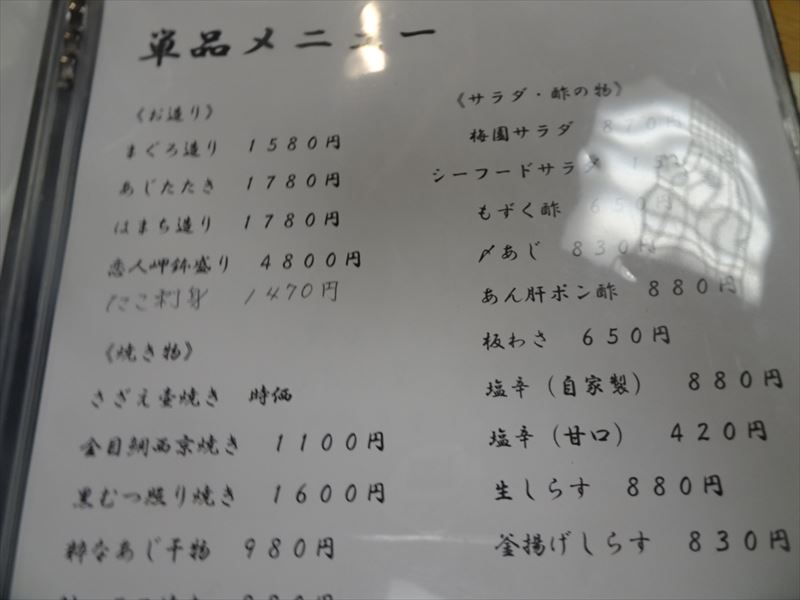 単品メニュー
《お造り》
まぐろ造り 1580円
あじたたき 1780円
はまち造り 1780円
恋人岬鉢盛り 4800円
たこ刺身 1470円
《焼き物》
さざえ壷焼き 時価
金目鯛西京焼き 1100円
黒むつ照り焼き 1600円
粋なあじ干物 980円
《サラダ・酢の物》
梅園サラダ 870円
シーフードサラダ
もずく酢 650円
〆あじ 830円
あん肝ポン酢 880円
板わさ 650円
塩辛（自家製） 880円
塩辛（甘口） 420円
生しらす 880円
釜揚げしらす 830円